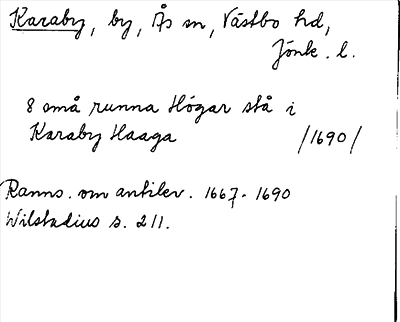 Karaby, by, Ås sn, Västbo hd,
Jönk. l.
8 små runna Högar stå i
Karaby Haaga /1690/
Ranns. om antikv. 1667-1690
Wilstadius s. 211.